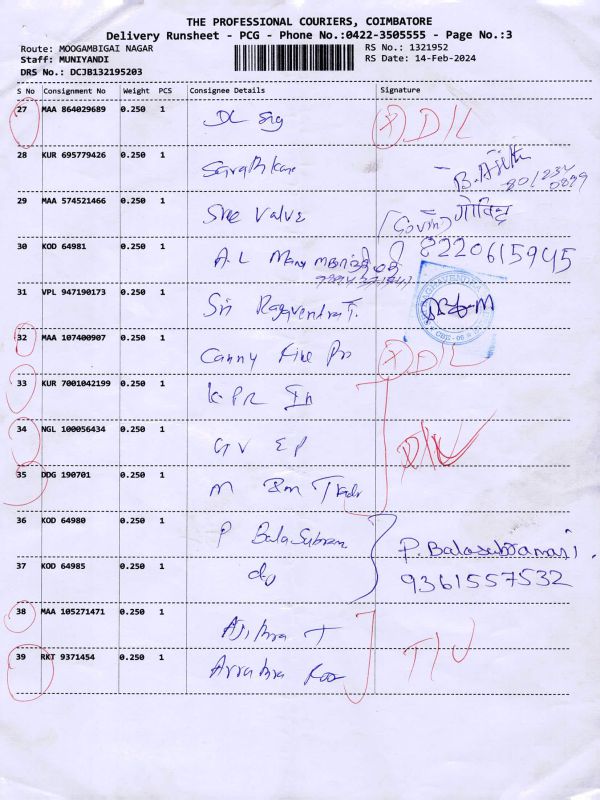 THE PROFESSIONAL COURIERS, COIMBATORE
Delivery Runsheet - PCG - Phone No.:0422-3505555 - Page No.:3
Route: MOOGAMBIGAI NAGAR
RS No.: 1321952
Staff: MUNIYANDI
RS Date: 14-Feb-2024
DRS No.: DCJB132195203
S No Consignment No Weight PCS Consignee Details Signature
27 MAA 864029689 0.250 1 DL D/L
28 KUR 695779426 0.250 1 B. Ajith
29 MAA 574521466 0.250 1 Sree Valve (Govin) गोविंद
8220615945
30 KOD 64981 0.250 1 A. L
31 VPL 947190173 0.250 1 Sri Ragavendra T.
32 MAA 107400907 0.250 1 Canny Fine Pro D/L
33 KUR 7001042199 0.250 1 K P R In
34 NGL 100056434 0.250 1 G V E P D/L
35 DDG 190701 0.250 1 M
36 KOD 64980 0.250 1 P Balasubram P. Balasubramani.
37 KOD 64985 0.250 1 do 9361557532
38 MAA 105271471 0.250 1
39 RKT 9371454 0.250 1